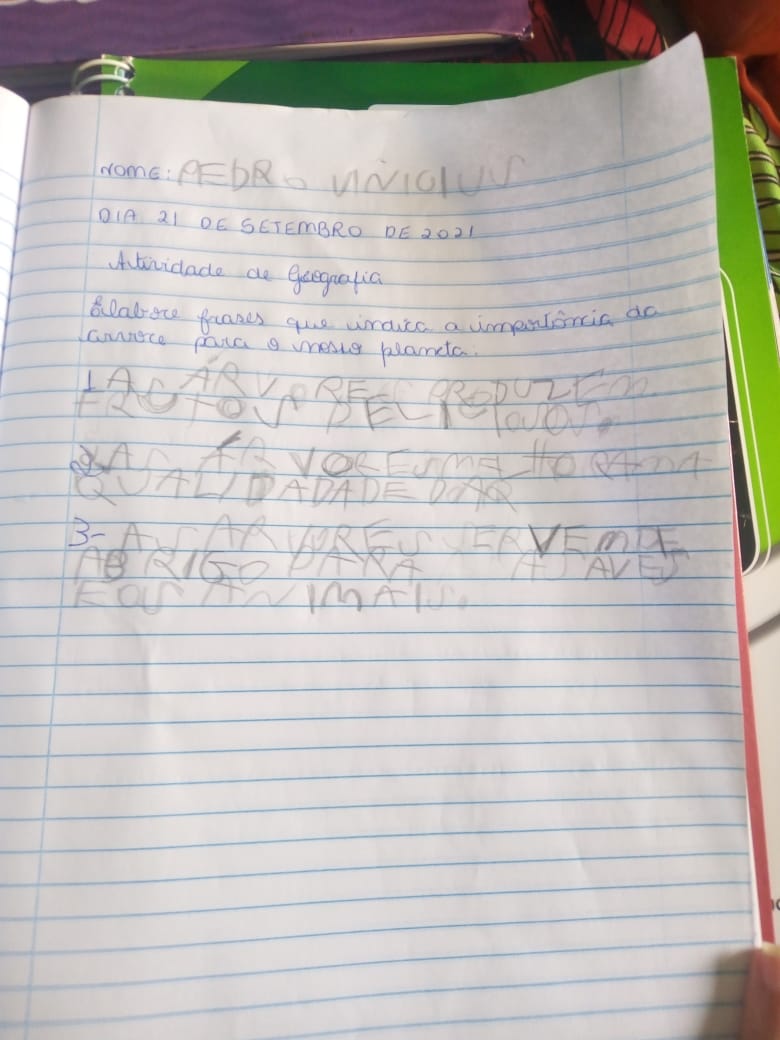 NOME: PEDRO VINICIUS
DIA 21 DE SETEMBRO DE 2021
Atividade de Geografia
Elabore frases que indica a importância da
arvore para o nosso planeta.
1 AS ÁRVORES PRODUZEM
FRUTOS DELICIOSOS.
2 AS ÁRVORES MELHORAM A
QUALIDADADE DO AR
3- AS ARVORES SERVEM DE
ABRIGO PARA AS AVES
E OS ANIMAIS.